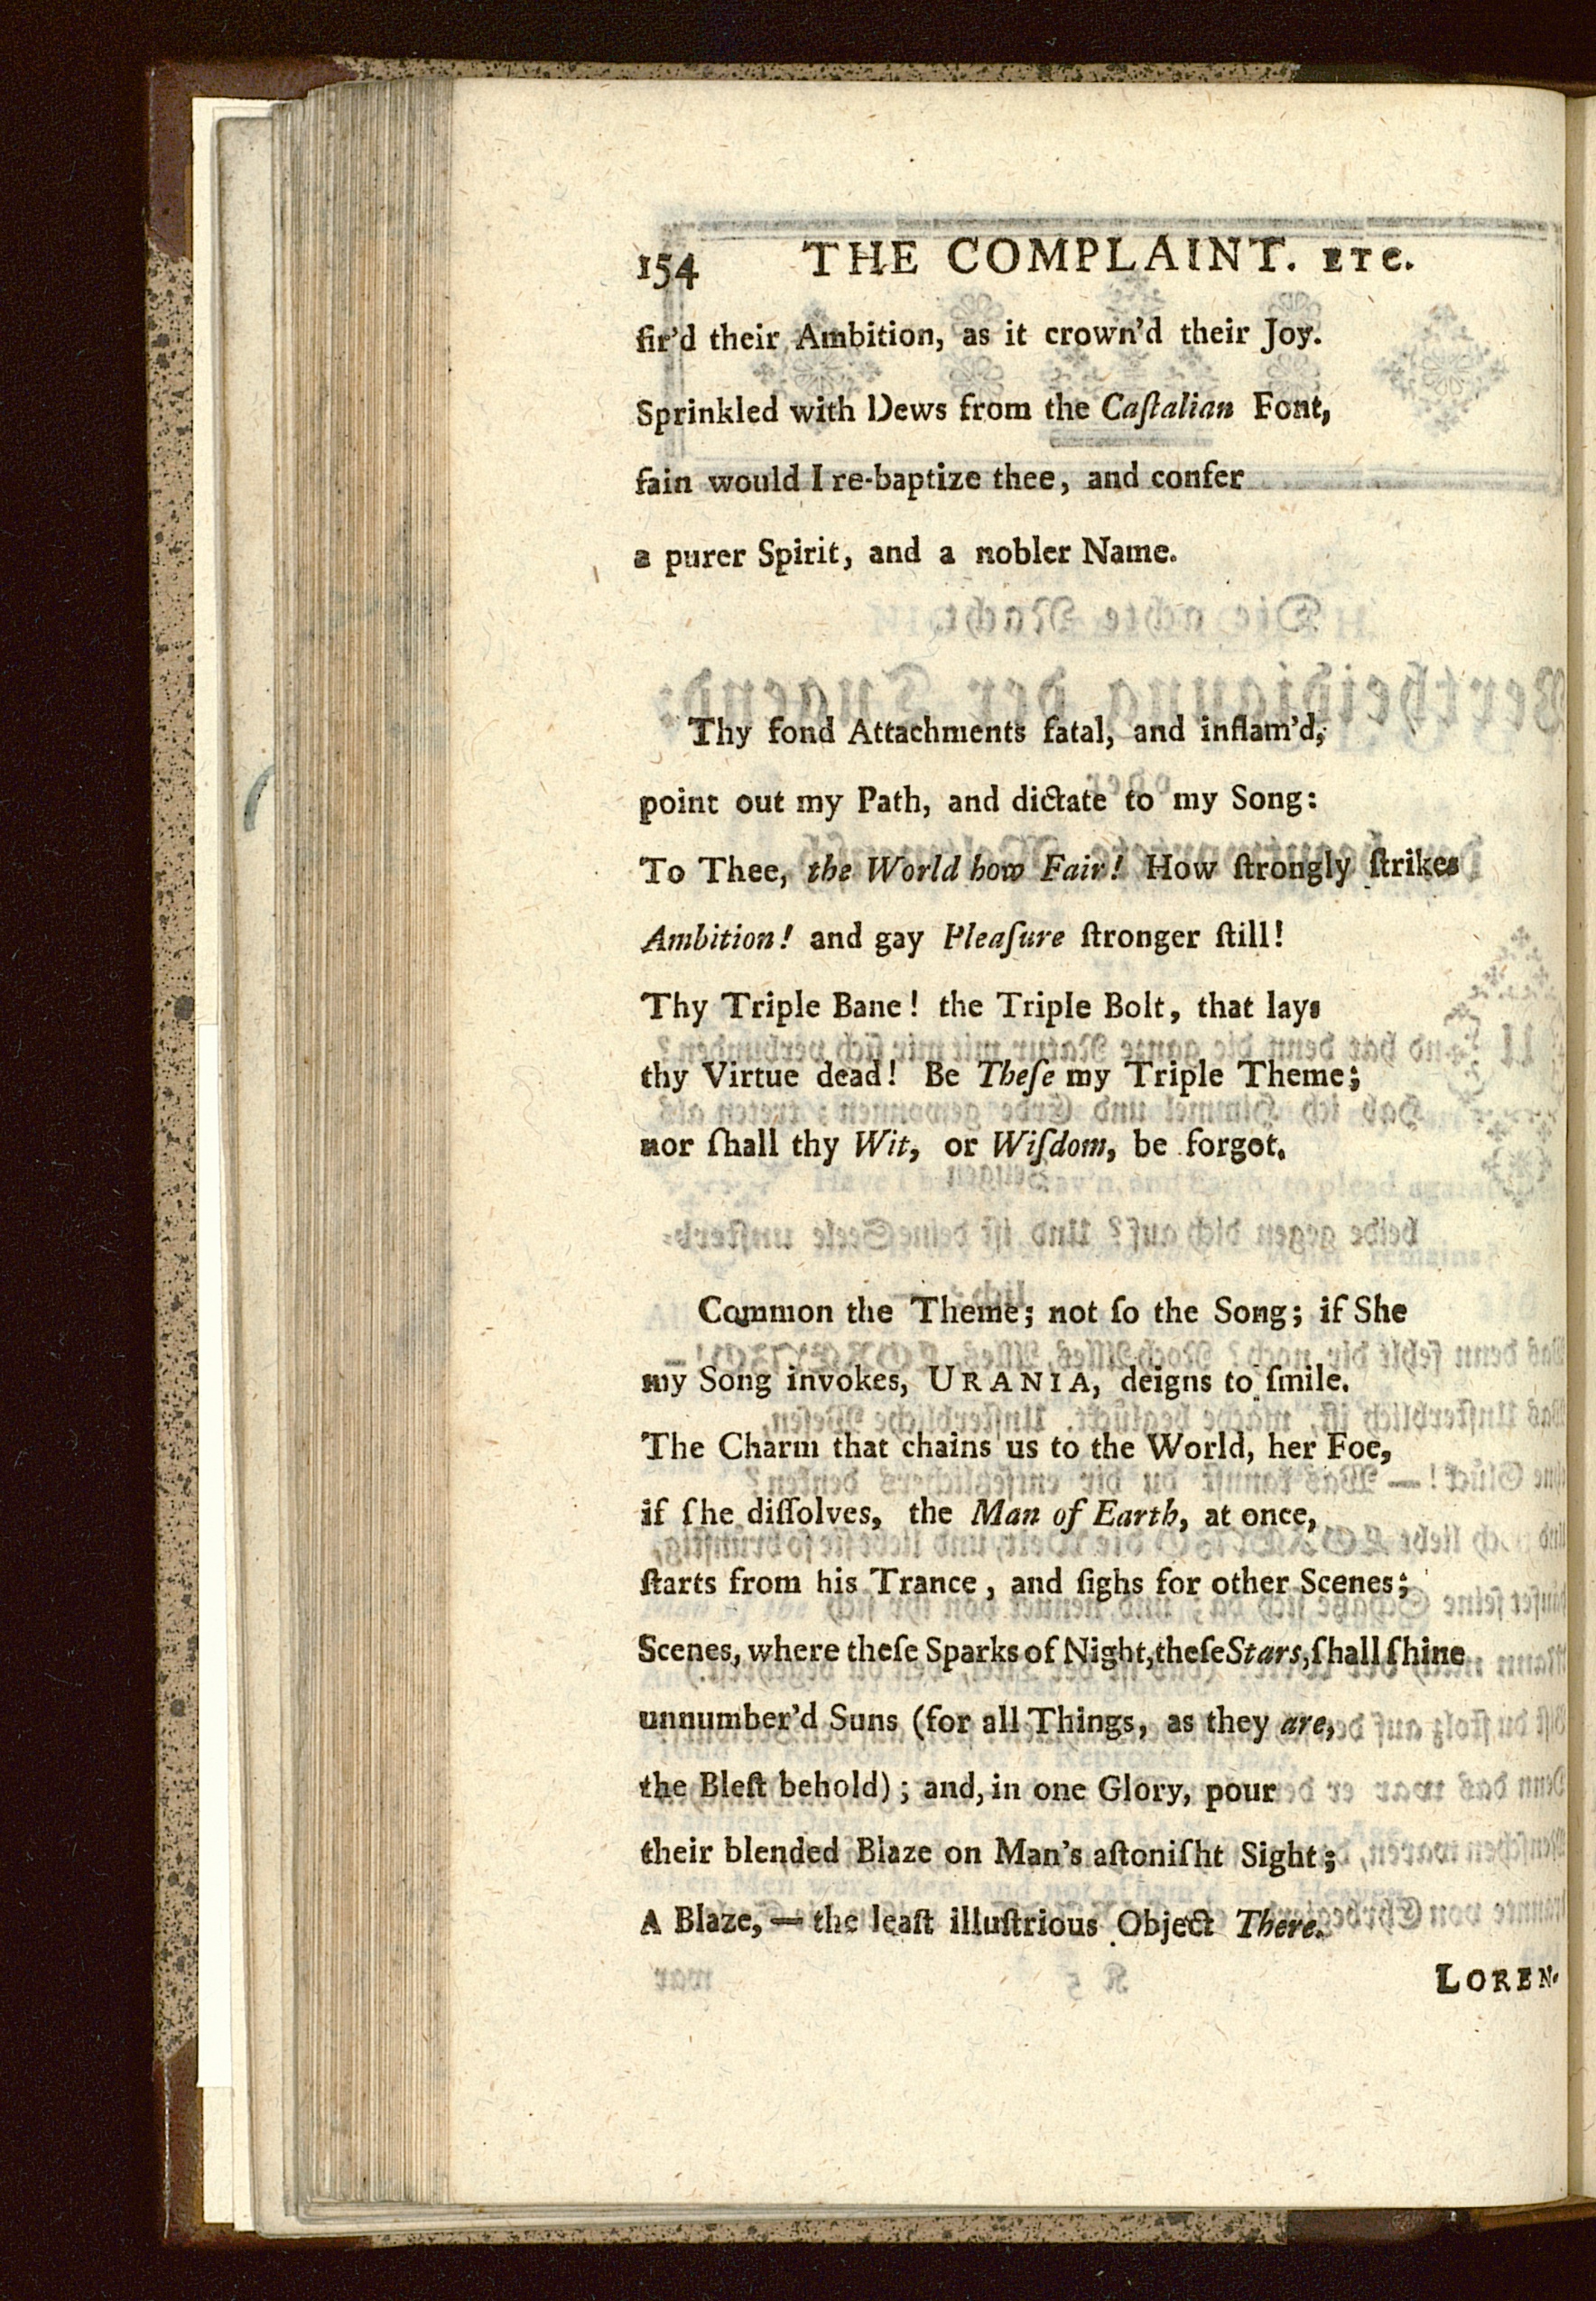 154 THE COMPLAINT. ETC.
fir'd their Ambition, as it crown'd their Joy.
Sprinkled with Dews from the Caſtalian Font,
fain would I re-baptize thee, and confer
a purer Spirit, and a nobler Name.
Thy fond Attachments fatal, and inflam'd,
point out my Path, and dictate to my Song:
To Thee, the World how Fair! How ſtrongly ſtrikes
Ambition! and gay Pleaſure ſtronger ſtill!
Thy Triple Bane! the Triple Bolt, that lays
thy Virtue dead! Be Theſe my Triple Theme;
nor ſhall thy Wit, or Wiſdom, be forgot.
Common the Theme; not ſo the Song; if She
my Song invokes, URANIA, deigns to ſmile.
The Charm that chains us to the World, her Foe,
if ſhe diſſolves, the Man of Earth, at once,
ſtarts from his Trance, and ſighs for other Scenes;
Scenes, where theſe Sparks of Night, theſe Stars, ſhall ſhine
unnumber'd Suns (for all Things, as they are,
the Bleſt behold); and, in one Glory, pour
their blended Blaze on Man's aſtoniſht Sight;
A Blaze, — the leaſt illuſtrious Object There.
LOREN-